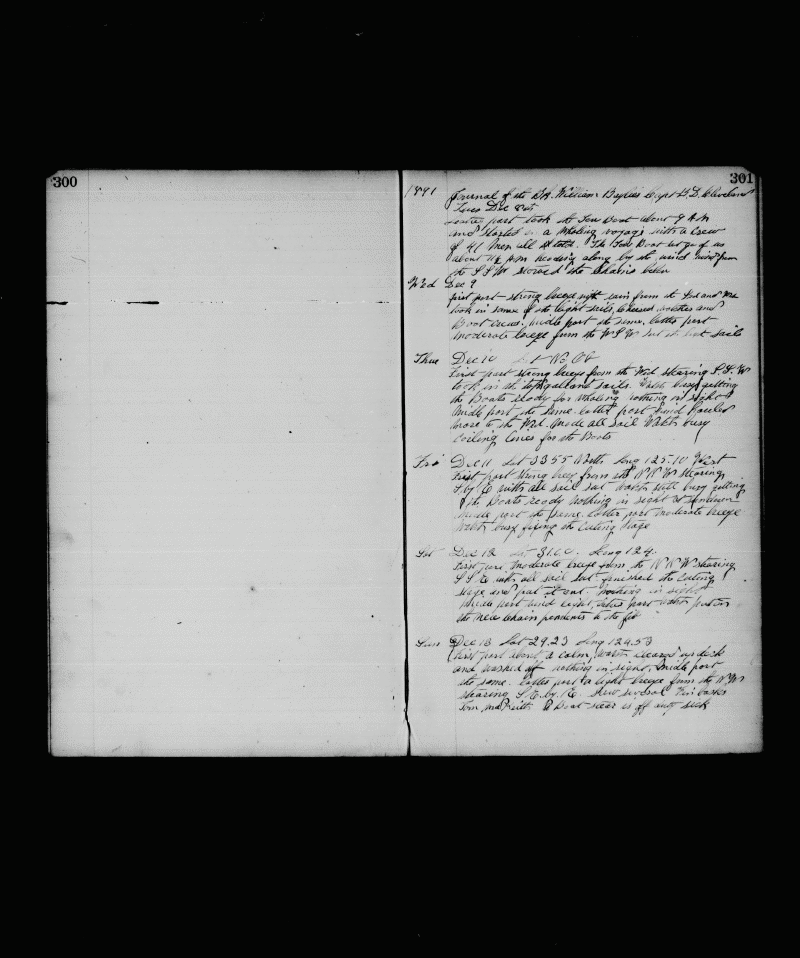 300
301
1891 Journal of the Bk. William Baylies Capt G.D. Cleveland
Tues Dec 8th
part took the Tow Boat about 9 A M
and started on a whaling voyage with a crew
of 41 Men all told. The Tow Boat let go of us
about 4 P.M heading along by the wind wind from
the S S W stowed the chains below
Wed Dec 9
first part strong breeze with rain from the and
took in some of the light sails, watches and
Boat crews. midle part the same, latter part
moderate breeze from the W S W sail
Thur Dec 10 Lat No Ob
First part strong breeze from the Wd stearing S. W
took in the topgallant sails. Watch busy getting
the Boats ready for whaling nothing in sight
midle part the same. latter part wind hauled
more to the Wd. made all sail Watch busy
coiling lines for the Boats
Fri Dec 11 Lat 33 55 North Long 125.10 West
First part strong breez from the N N W stearing
S, by E with all sail set watch still busy getting
the Boats ready nothing in sight at sundown
midle part the same. latter part moderate breeze
watch busy fixing the cuting stage
Sat Dec 12 Lat 31.00. Long 124.
First part moderate breeze from the N N W stearing
S S E with all sail set finished the cuting
stage and put it out. nothing in sight
midle part wind light, latter part watch put on
the new chain pendents to the jib
Sun Dec 13 Lat 29.23 Long 124.53
First part about a calm, watch cleared up deck
and washed off nothing in sight. midle part
the same. latter part a light breeze from the N.W
stearing S.E. by. E. saw several Finbacks
Tom a Boat stear is off duty sick